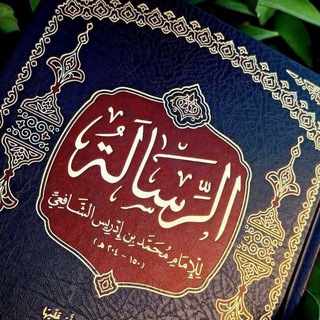 الرِّسَالَةُ
لِلْإِمَامِ مُحَمَّدِ بْنِ إِدْرِيسَ الشَّافِعِيِّ
(١٥٠ - ٢٠٤ هـ)